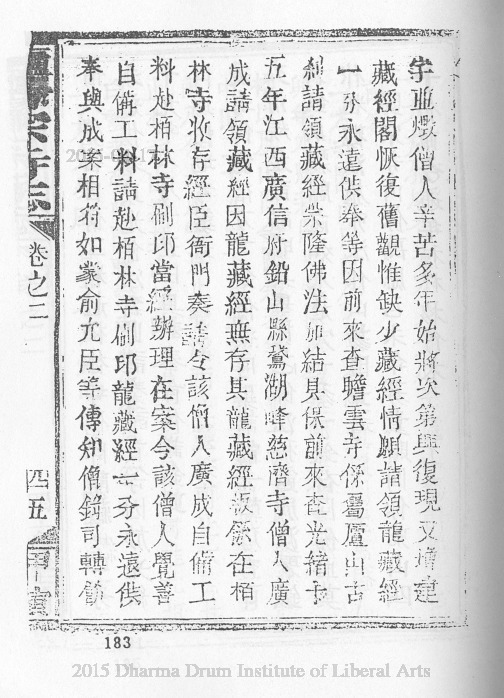 宇亞燬僧人辛苦多年始將次第興復現又增建
藏經閣恢復舊觀惟缺少藏經情願請領龍藏經
一分永遠供奉等因前來查瞻雲寺係屬廬山古
剎請領藏經崇隆佛法加結具保前來查光緒
五年江西廣信府鉛山縣鵞湖峰慈濟寺僧人廣
成請領藏經因龍藏經無存其龍藏經板係在栢
林寺收存經臣衙門奏請令該僧人廣成自備工
料赴栢林寺刷印當經辦理在案今該僧人覺善
自備工料請赴栢林寺刷印龍藏經一分永遠供
奉與成案相符如蒙俞允臣等傳知僧錄司轉飭
宗寺志
卷之二
四五
183
2015 Dharma Drum Institute of Liberal Arts